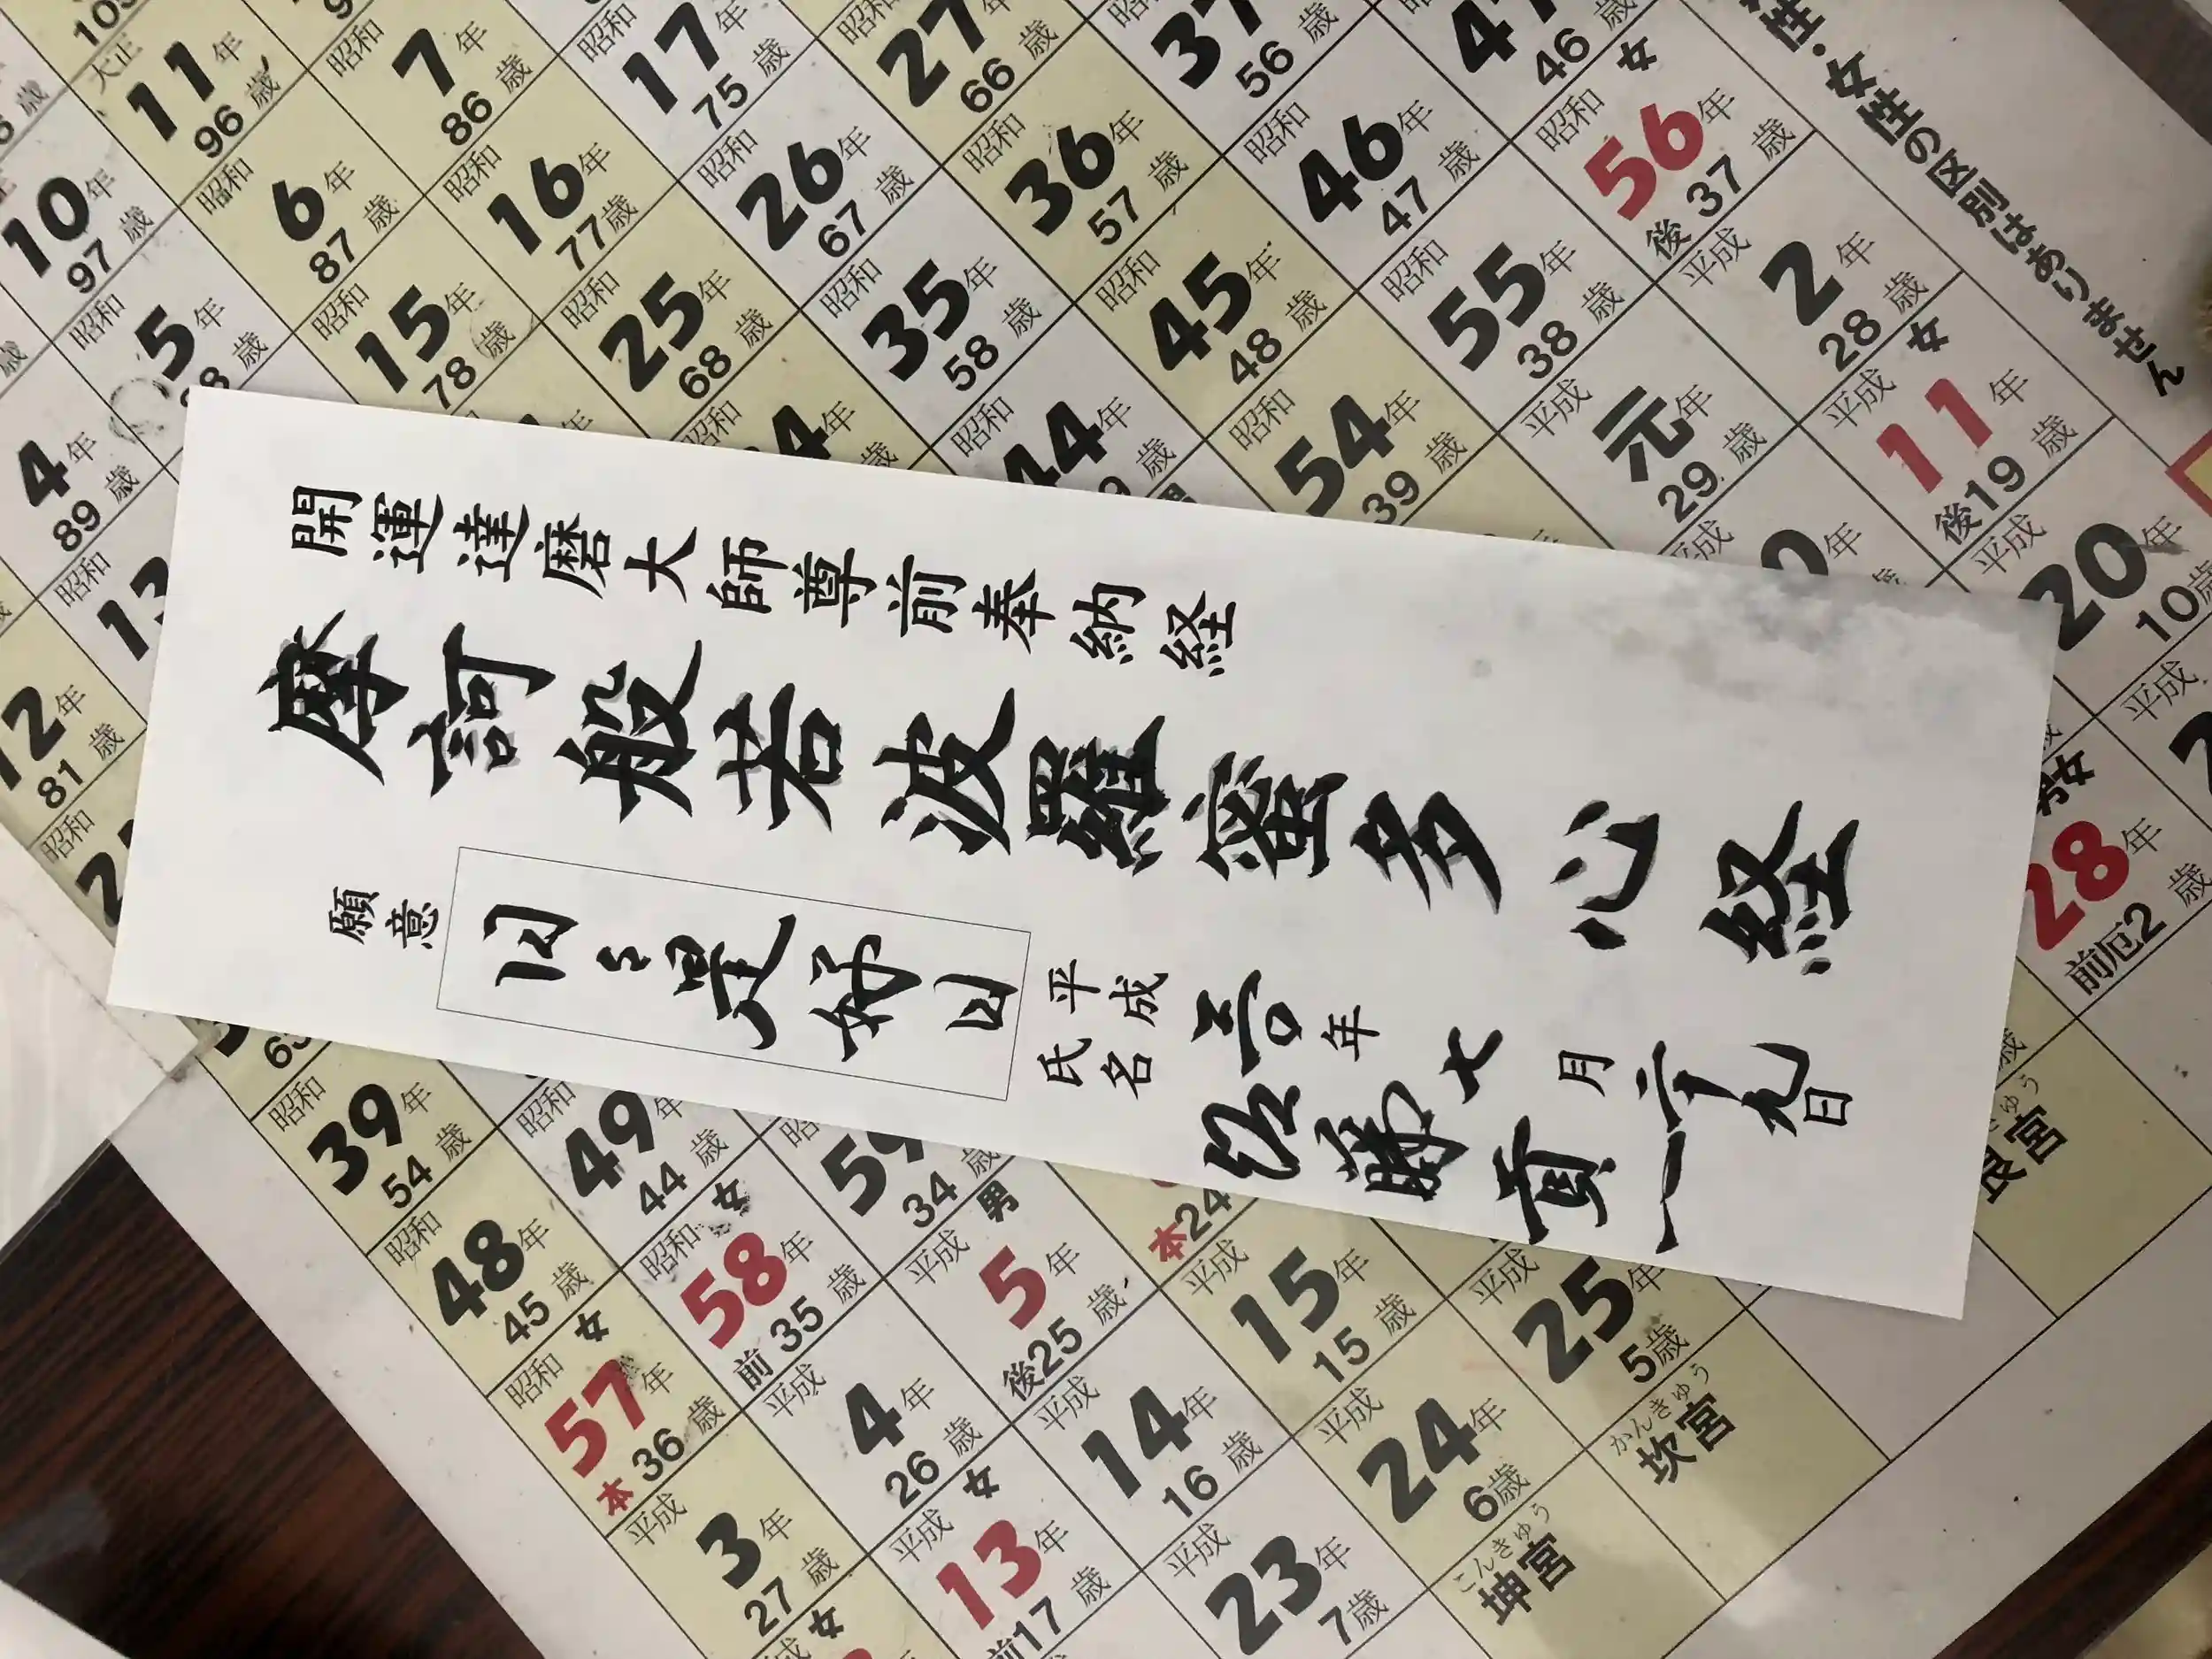 開運達磨大師尊前奉納経
摩訶般若波羅蜜多心経
願意
日々是好日
平成三〇年七月二十九日
氏名
勝
貢一
性・女性の区別はありません
大正11年
96歳
昭和7年
86歳
昭和17年
75歳
昭和27年
66歳
37
56歳
47
46歳
10年
97歳
昭和6年
87歳
昭和16年
77歳
昭和26年
67歳
昭和36年
57歳
昭和46年
47歳
女
昭和56年
後37歳
4年
89歳
昭和5年
歳
昭和15年
78歳
昭和25年
68歳
昭和35年
58歳
昭和45年
48歳
昭和55年
38歳
平成2年
28歳
12年
81歳
昭和13
昭和44年
歳
昭和54年
39歳
平成元年
29歳
女
平成11年
後19歳
平成20年
10歳
女
28年
前厄2歳
昭和39年
54歳
昭和49年
44歳
59
34歳
本24
昭和48年
45歳
女
昭和58年
前35歳
男
平成5年
後25歳
平成15年
15歳
平成25年
5歳
艮宮
女
昭和57年
本36歳
平成4年
26歳
平成14年
16歳
平成24年
6歳
かんきゅう
坎宮
平成3年
27歳
女
平成13年
前17歳
平成23年
7歳
こんきゅう
坤宮
女